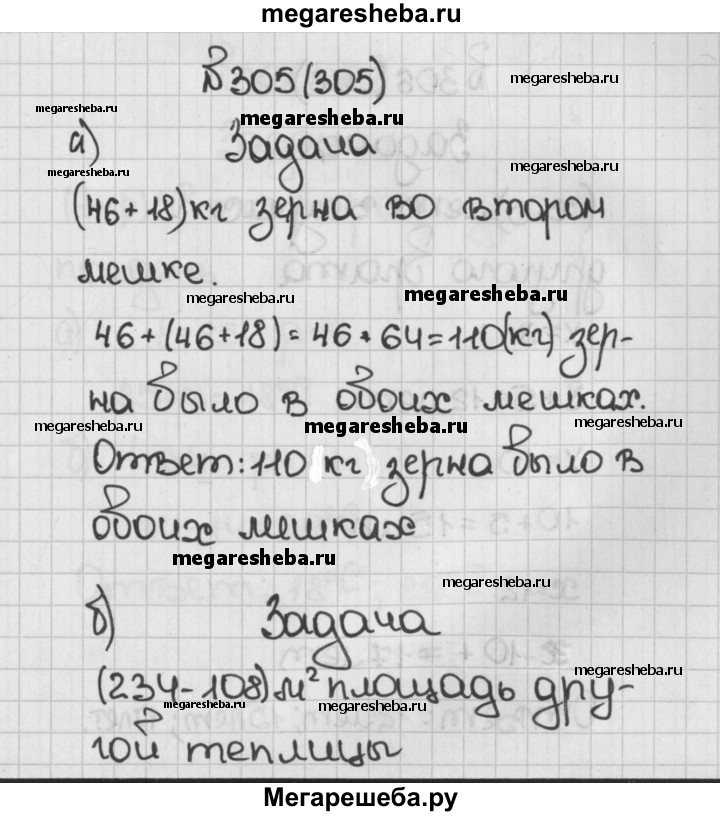 megaresheba.ru
№305(305)
megaresheba.ru
megaresheba.ru
megaresheba.ru
а) Задача
megaresheba.ru
megaresheba.ru
(46+18)кг зерна во втором
мешке.
megaresheba.ru
megaresheba.ru
46+(46+18)=46+64=110(кг) зер-
на было в обоих мешках.
megaresheba.ru
megaresheba.ru
megaresheba.ru
Ответ: 110(кг) зерна было в
обоих мешках
megaresheba.ru
megaresheba.ru
б) Задача
megaresheba.ru
(234-108)м² площадь дру-
megaresheba.ru
megaresheba.ru
гой теплицы
Мегарешеба.ру